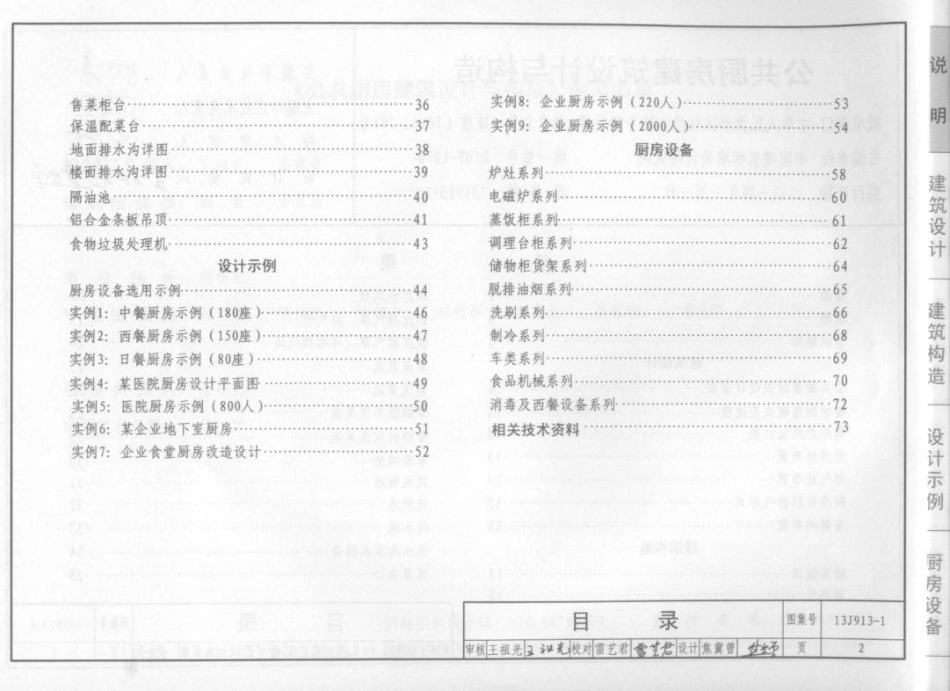 售菜柜台 36
保温配菜台 37
地面排水沟详图 38
楼面排水沟详图 39
隔油池 40
铝合金条板吊顶 41
食物垃圾处理机 43
设计示例
厨房设备选用示例 44
实例1: 中餐厨房示例(180座) 46
实例2: 西餐厨房示例(150座) 47
实例3: 日餐厨房示例(80座) 48
实例4: 某医院厨房设计平面图 49
实例5: 医院厨房示例(800人) 50
实例6: 某企业地下室厨房 51
实例7: 企业食堂厨房改造设计 52
实例8: 企业厨房示例(220人) 53
实例9: 企业厨房示例(2000人) 54
厨房设备
炉灶系列 58
电磁炉系列 60
蒸饭柜系列 61
调理台柜系列 62
储物柜货架系列 64
脱排油烟系列 65
洗刷系列 66
制冷系列 67
车类系列 69
食品机械系列 70
消毒及西餐设备系列 72
相关技术资料 73
目 录 图集号 13J913-1
审核 王祖光 校对 雷艺君 雷艺君 设计 焦冀曾 页 2
说明
建筑设计
建筑构造
设计示例
厨房设备